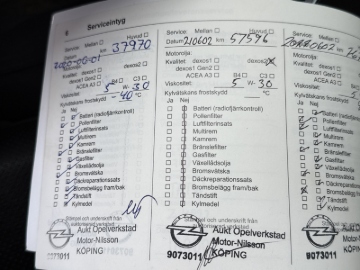 6 Serviceintyg
Service: Mellan Huvud
km 37970
Motorolja:
Kvalitet dexos1 dexos2
dexos1 Gen2
ACEA A3 C3
Viskositet: 5 W- 30
Kylvätskans frostskydd
-40 °C
Ja Nej
Batteri (radiofjärrkontroll)
Pollenfilter
Luftfilterinsats
Multirem
Kamrem
Bränslefilter
Gasfilter
Växellådsolja
Bromsvätska
Däckreparationssats
Bromsbelägg fram/bak
Tändstift
Kylmedel
Stämpel och underskrift från
Aukt Opelverkstad
Motor-Nilsson
9073011 KÖPING
Service: Mellan Huvud
Datum 210602 km 57596
Motorolja:
Kvalitet dexos1 dexos2
dexos1 Gen2
ACEA A3 C3
Viskositet: 5 W- 30
Kylvätskans frostskydd
°C
Ja Nej
Batteri (radiofjärrkontroll)
Pollenfilter
Luftfilterinsats
Multirem
Kamrem
Bränslefilter
Gasfilter
Växellådsolja
Bromsvätska
Däckreparationssats
Bromsbelägg fram/bak
Tändstift
Kylmedel
Stämpel och underskrift från
Aukt Opelverkstad
Motor-Nilsson
9073011 KÖPING
Service: Mellan
Motorolja:
Kvalitet dexos1
dexos1 Gen2
ACEA A3
Viskositet:
Kylvätskans frostskydd
Ja Nej
Batteri (radiofjärrkontroll)
Pollenfilter
Luftfilterinsats
Multirem
Kamrem
Bränslefilter
Gasfilter
Växellådsolja
Bromsvätska
Däckreparationssats
Bromsbelägg fram/bak
Tändstift
Kylmedel
Stämpel och underskrift från
Aukt Opelverkstad
Motor-Nilsson
9073011 KÖPING